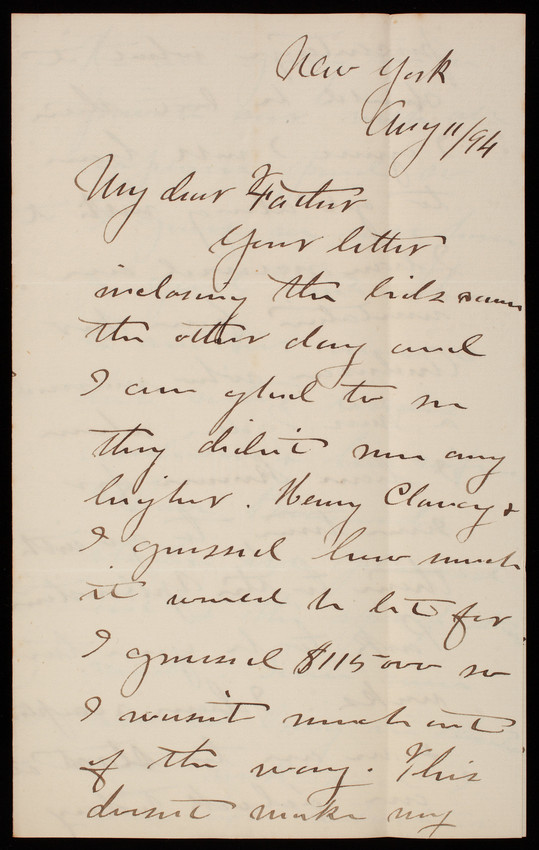 New York
Aug 11/94
My dear Father
Your letter
inclosing the bids came
the other day and
I am glad to see
they didn't run any
higher. Henry Clancy &
I guessed how much
it would be let for
I guessed $115000 so
I wasn't much out
of the way. This
doesn't make my